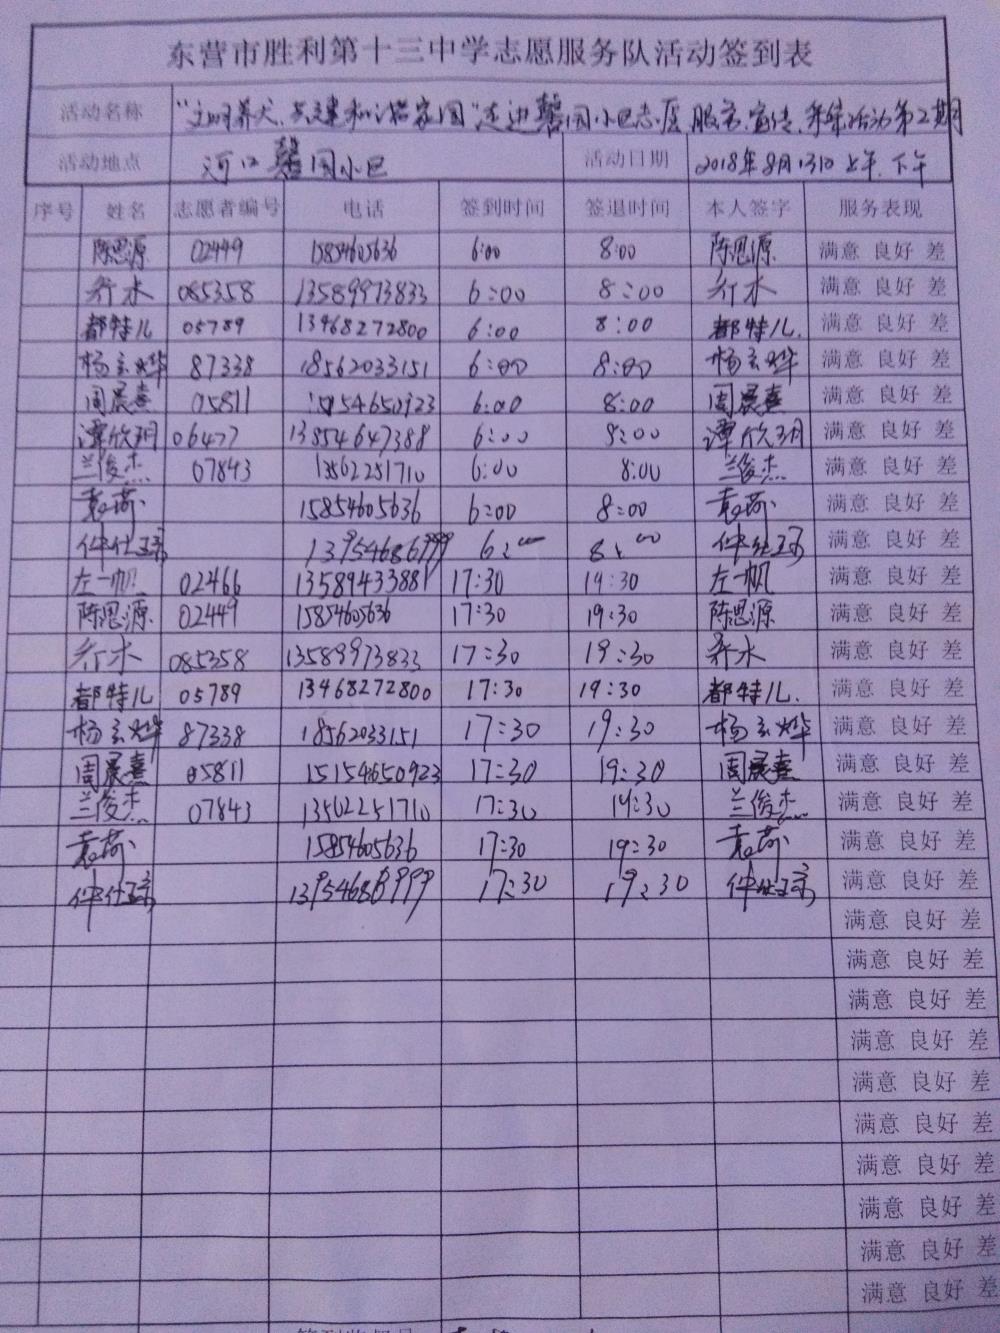 东营市胜利第十三中学志愿服务队活动签到表
活动名称 "文明养犬,共建和谐家园"走进馨园小区志愿服务宣传 活动第2期
活动地点 河口馨园小区 活动日期 2018年8月13日上午.下午
序号 姓名 志愿者编号 电话 签到时间 签退时间 本人签字 服务表现
陈思源 02449 15854605636 6:00 8:00 陈思源 满意 良好 差
乔木 085358 13589973833 6:00 8:00 乔木 满意 良好 差
都特儿 05789 13468272800 6:00 8:00 都特儿. 满意 良好 差
杨玄烨 87338 18562033151 6:00 8:00 杨玄烨 满意 良好 差
周晨熹 05811 15154650923 6:00 8:00 周晨熹 满意 良好 差
谭欣玥 06477 13854647388 6:00 8:00 谭欣玥 满意 良好 差
兰俊杰 07843 13562251710 6:00 8:00 兰俊杰 满意 良好 差
袁荷 15854605636 6:00 8:00 袁荷 满意 良好 差
仲仕琼 13954686999 6:00 8:00 仲仕琼 满意 良好 差
左一帆 02466 13589433881 17:30 19:30 左一帆 满意 良好 差
陈思源 02449 15854605636 17:30 19:30 陈思源 满意 良好 差
乔木 085358 13589973833 17:30 19:30 乔木 满意 良好 差
都特儿 05789 13468272800 17:30 19:30 都特儿. 满意 良好 差
杨玄烨 87338 18562033151 17:30 19:30 杨玄烨 满意 良好 差
周晨熹 05811 15154650923 17:30 19:30 周晨熹 满意 良好 差
兰俊杰 07843 13502251710 17:30 19:30 兰俊杰 满意 良好 差
袁荷 15854605636 17:30 19:30 袁荷 满意 良好 差
仲仕琼 13954686999 17:30 19:30 仲仕琼 满意 良好 差
满意 良好 差
满意 良好 差
满意 良好 差
满意 良好 差
满意 良好 差
满意 良好 差
满意 良好 差
满意 良好 差
满意 良好 差
满意 良好 差